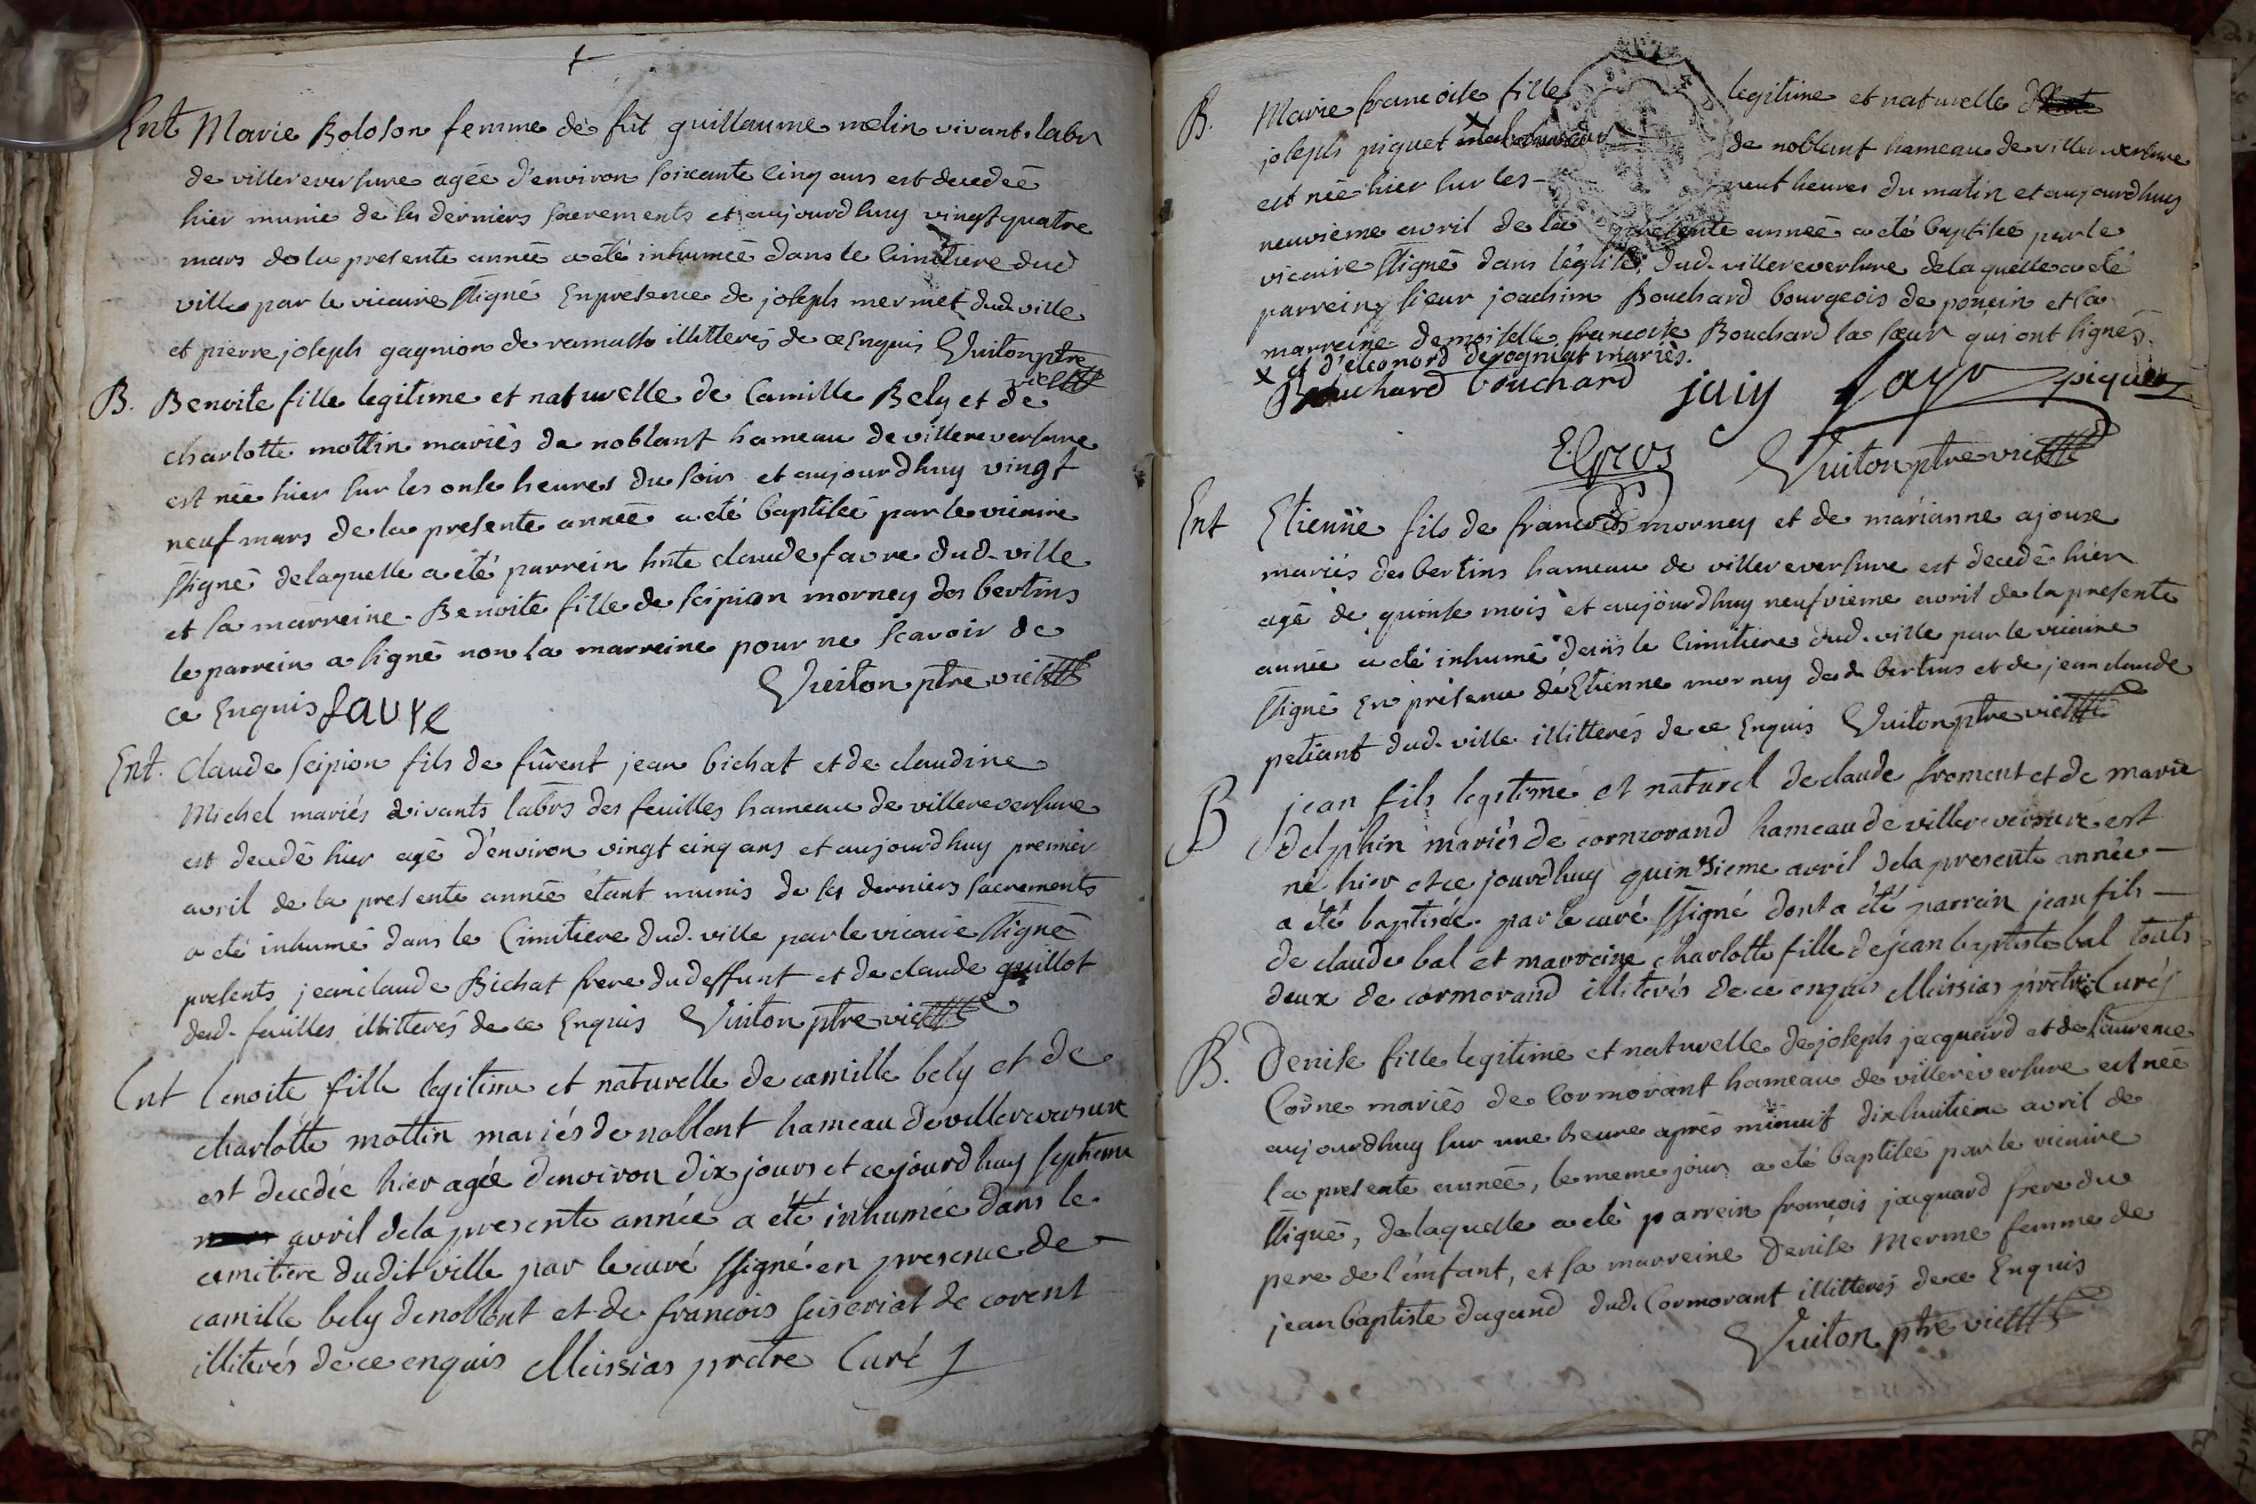 Ent Marie Boloson femme de fût guillaume melin vivant labr
de villereversure agée d'environ soixante cinq ans est decedeé
hier munie de ses derniers sacrements et aujourdhuy vingt quatre
mars de la presente année a été inhumeé dans le cimitiere dud
ville par le vicaire ssigné Enpresence de joseph mermet dud ville
et pierre joseph gagnion de ramasse illitterés de ce Enquis Vuiton ptre
vic
B. Benoite fille legitime et naturelle de Camille Bely et de
charlotte mottin mariés de noblant hameau de villereversure
est née hier sur les onse heures du soir et aujourdhuy vingt
neuf mars de la presente année a été baptiseé par le vicaire
ssigné delaquelle a été parrein hnte claude favre dud. ville
et sa marreine. Benoite fille de scipion morney des bertins
le parrein a signé non la marreine pour ne scavoir de
ce Enquis favre Vuiton ptre vic
Ent. Claude scipion fils de fûrent jean bichat et de claudine
Michel mariés vivants labrs des feuilles hameau de villereversure
est decedé hier agé d'environ vingt cinq ans et aujourdhuy premier
avril de la presente année étant munis de ses derniers sacrements
a été inhumé dans le Cimitiere dud. ville par le vicaire ssigné
presents jeanclaude Bichat frere du deffunt et de claude guillot
desd. feuilles illitterés de ce Enquis Vuiton ptre vic
Ent benoite fille legitime et naturelle de camille bely et de
charlotte mottin mariés de noblent hameau de villereversure
est decedée hier agée denviron dix jours et cejourdhuy septieme
avril dela presente année a été inhumée dans le
cimitiere dudit ville par le curé ssigné en presence de
camille bely de noblent et de francois seiseriat de corent
illiterés de ce enquis Meissias pretre Curé
B. Marie francoise fille legitime et naturelle de
joseph piquet x de noblant hameau de villereversure
est née hier sur les neuf heures du matin et aujourdhuy
neuvieme avril de la presente année a été baptisée par le
vicaire ssigné dans l'église dud. villereversure delaquelle a été
parrein sieur joachim Bouchard bourgeois de poncin et la
marreine demoiselle francoise Bouchard sa sœur qui ont signés.
x et d'éleonord derogniat mariés.
Bouchard bouchard juiy fayv piquet
E. Gros Vuiton ptre vic
Ent Etienne fils de francois morney et de marianne ajoux
mariés des bertins hameau de villereversure est decedé hier
agé de quinse mois et aujourdhuy neufvieme avril de la presente
année a été inhumé dans le Cimitiere dud. ville par le vicaire
ssigné En présence d'Etienne morney desd. bertins et de jean claude
petiant dud. ville illitterés de ce Enquis Vuiton ptre vic
B jean fils legitime et naturel de claude froment et de marie
delphin mariés de cormorand hameau de villereversure est
né hier et ce jourdhuy quinsieme avril dela presente année
a été baptisée par le curé ssigné dont a été parrein jean fils
de claude bal et marreine charlotte fille de jean baptiste bal touts
deux de cormorand illiterés de ce enquis Meissias prétre Curé
B. Denise fille legitime et naturelle de joseph jacquard et de laurence
Corne mariés de Cormorant hameau de villereversure est née
aujourdhuy sur une heure après minuit dixhuitieme avril de
la presente année, le meme jour a été baptisée par le vicaire
ssigné, delaquelle a été parrein françois jacquard frere du
pere de l'enfant, et sa marreine Denise Merme femme de
jean baptiste dagand dud. Cormorant illitterés de ce Enquis
Vuiton ptre vic